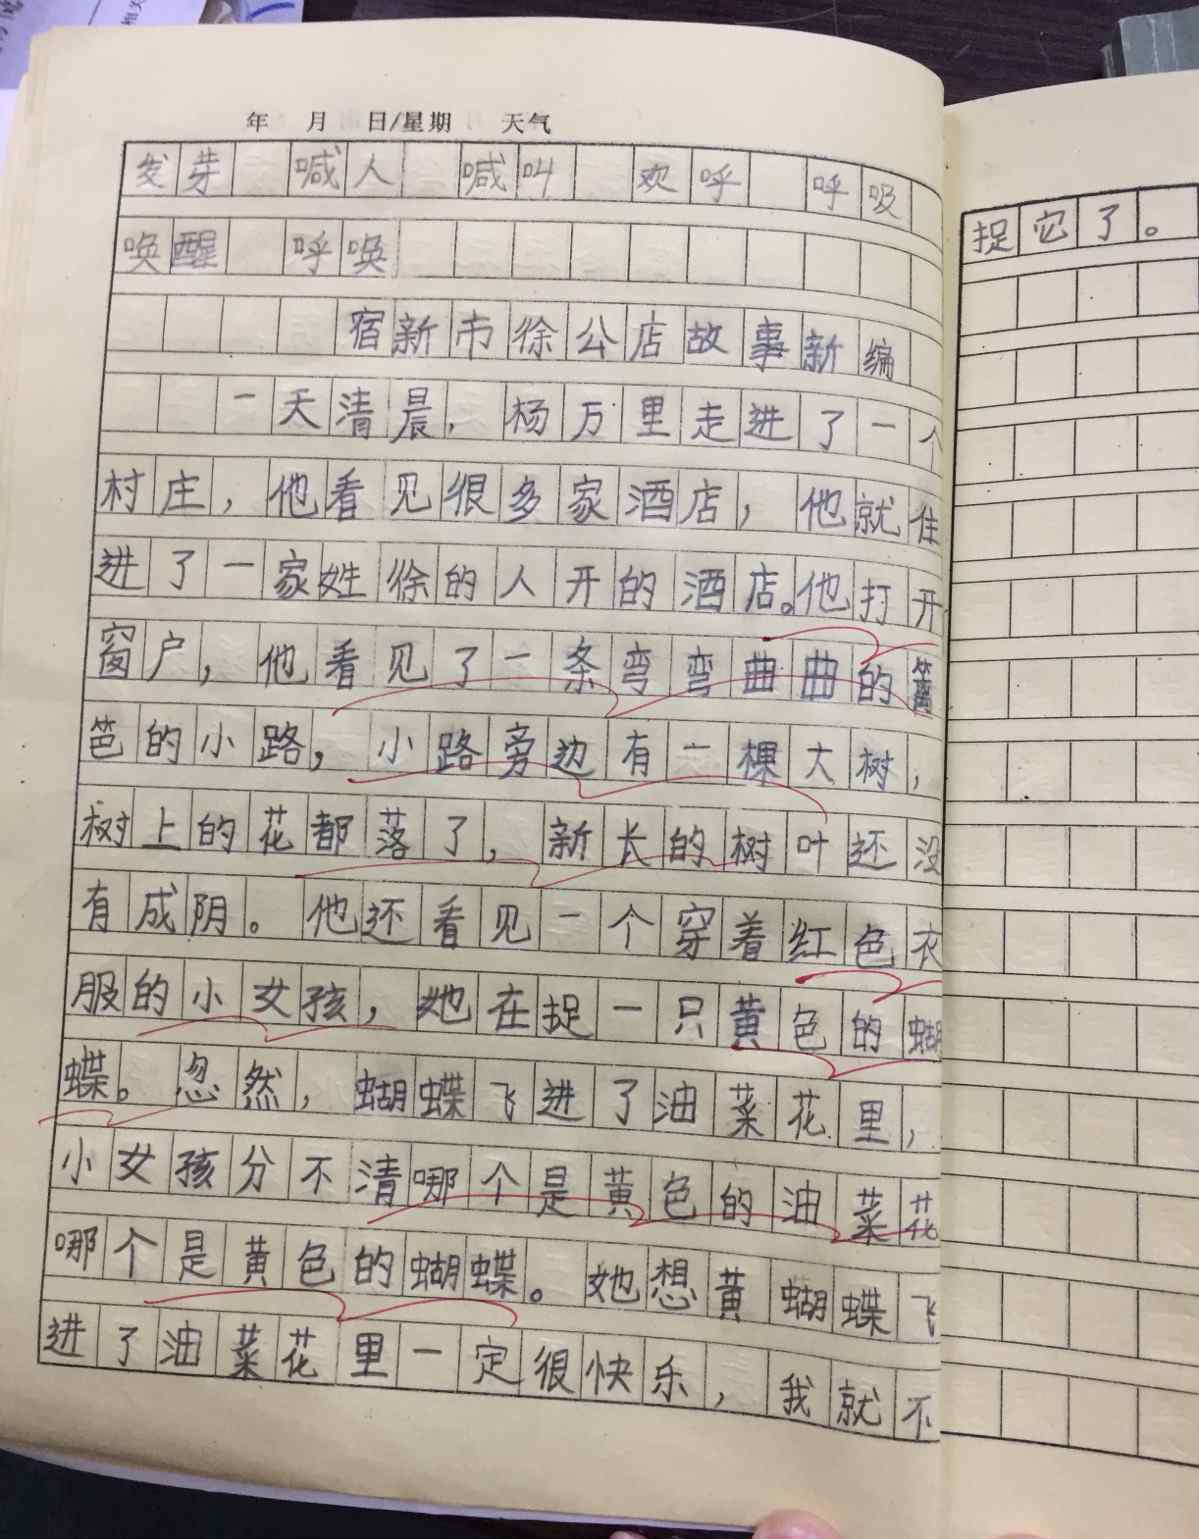 年 月 日/星期 天气
发芽 喊人 喊叫 欢呼 呼吸
唤醒 呼唤
宿新市徐公店故事新编
一天清晨，杨万里走进了一个
村庄，他看见很多家酒店，他就住
进了一家姓徐的人开的酒店。他打开
窗户，他看见了一条弯弯曲曲的篱
笆的小路，小路旁边有一棵大树，
树上的花都落了，新长的树叶还没
有成阴。他还看见一个穿着红色衣
服的小女孩，她在捉一只黄色的蝴
蝶。忽然，蝴蝶飞进了油菜花里，
小女孩分不清哪个是黄色的油菜花
哪个是黄色的蝴蝶。她想黄蝴蝶飞
进了油菜花里一定很快乐，我就不
捉它了。